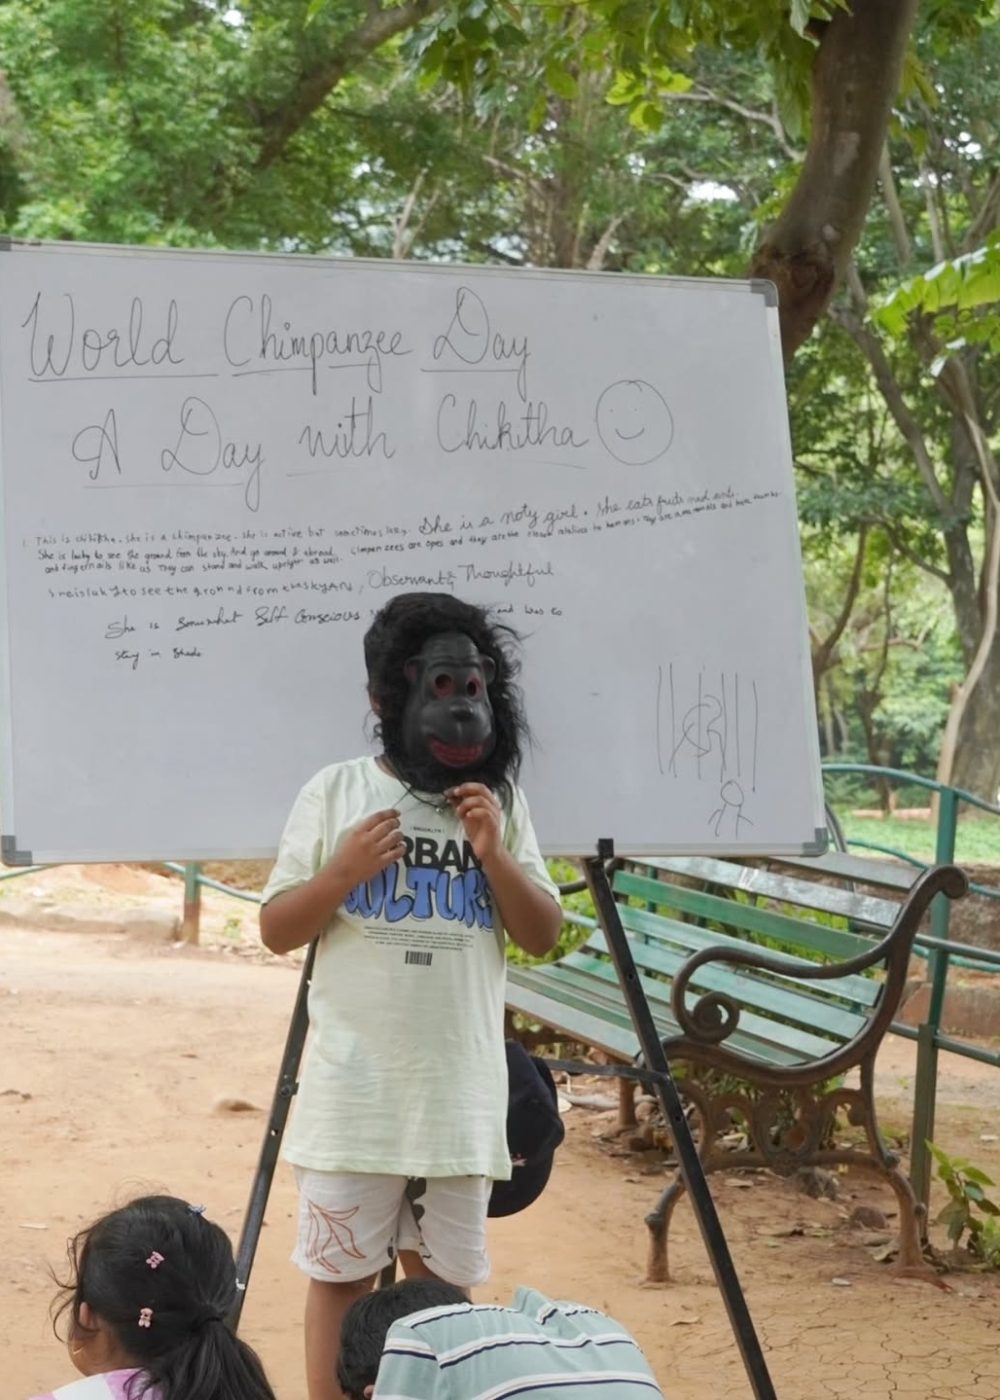 World Chimpanzee Day
A Day with Chikitha
This is chikitha. she is a chimpanzee. she is active but sometimes lazy. She is a noty girl. She eats fruits and ants.
She is lucky to see the ground from the sky. And go around & abroad. Chimpanzees are apes and they are the closest relatives to humans. They are mammals and have thumbs
and fingernails like us They can stand and walk upright as well.
to see the ground from the sky AN, Observant & Thoughtful
She is somewhat Self Conscious and
stay in shade
BROOKLYN
RBAN
ULTUR